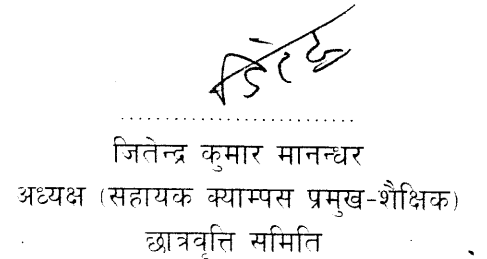 ..........................
जितेन्द्र कुमार मानन्धर
अध्यक्ष (सहायक क्याम्पस प्रमुख-शैक्षिक)
छात्रवृत्ति समिति